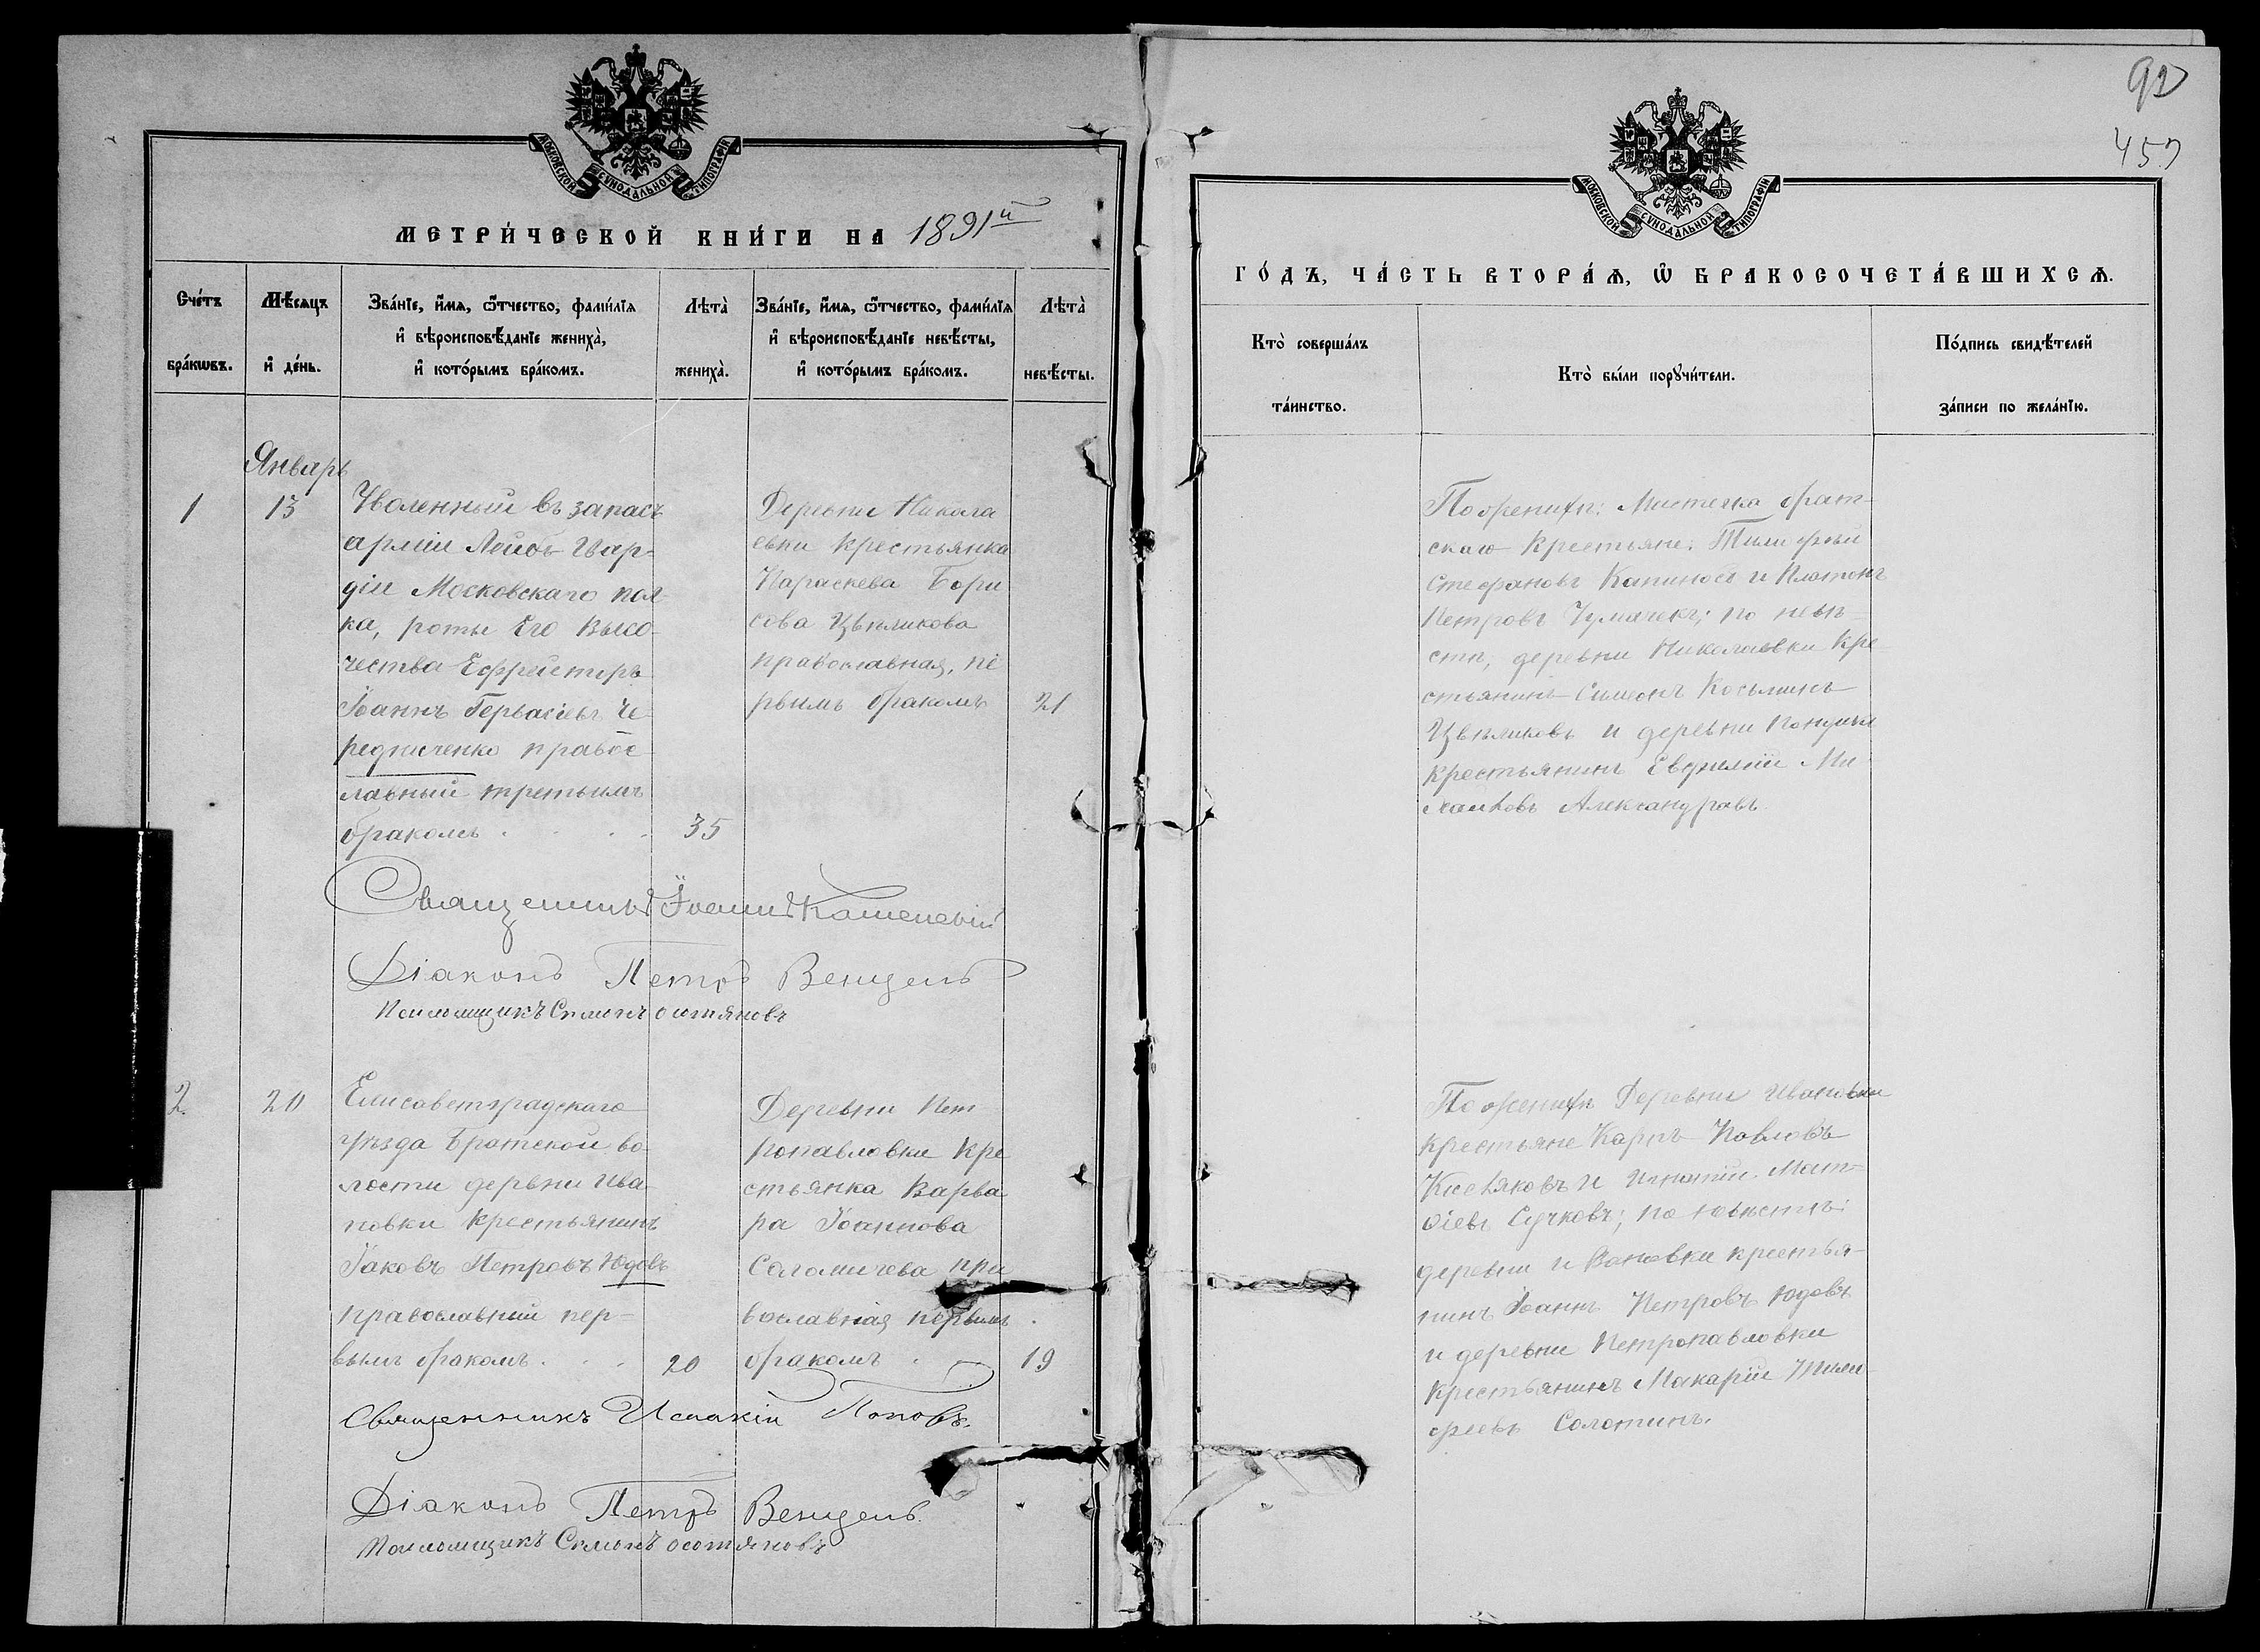 92
457
МОСКОВСКОЙ СѴНОДАЛЬНОЙ ТИПОГРАФІИ
МЕТРИ́ЧЕСКОЙ КНИ́ГИ НА 1891й
Сче́тъ бра́кѡвъ.
Мѣ́сяцъ и҆ де́нь.
Зва́нїе, и҆́мѧ, ѻ҆́тчество, фами́лїѧ
и҆ вѣроисповѣ́данїе жениха̀,
и҆ кото́рымъ бра́комъ.
Лѣта̀ жениха̀.
Зва́нїе, и҆́мѧ, ѻ҆́тчество, фами́лїѧ
и҆ вѣроисповѣ́данїе невѣ́сты,
и҆ кото́рымъ бра́комъ.
Лѣта̀ невѣ́сты.
Январь
1
13
Уволенный въ запасъ
арміи Лейбъ-Гвар-
діи Московскаго пол-
ка, роты Его Высо-
чества Ефрейторъ
Іоаннъ Гервасіевъ Че-
редниченко правос
лавный третьимъ
бракомъ . . . .
35
Деревни Никола
евки крестьянка
Параскева Бори
сова Цвѣликова
православная, пе
рвымъ бракомъ
21
Священникъ Іоаннъ
Діаконъ Петръ Венцель
Псаломщикъ
2
20
Елисаветградскаго
уѣзда Братской во
лости дервни Ива
новки крестьянинъ
Іаковъ Петровъ Юдовъ
православный пер-
вымъ бракомъ . . .
20
Деревни Пет
ропавловки кре
стьянка Варва
ра Іоаннова
Соломичева пра
вославная первымъ
бракомъ .
19
Священникъ Исаакій Поповъ.
Діаконъ Петръ Венцель.
Псаломщикъ
МОСКОВСКОЙ СѴНОДАЛЬНОЙ ТИПОГРАФІИ
ГО́ДЪ, ЧА́СТЬ ВТОРА́Ѧ, Ѡ҆ БРАКОСОЧЕТА́ВШИХСѦ.
Кто̀ соверша́лъ
та́инство.
Кто̀ бы́ли порꙋчи́тели.
По́дпись свидѣ́телей
за́писи по жела́нїю.
По женихѣ: Мистечка Брат-
скаго крестьяне: Тимофей
Стефановъ Капиносъ и Платонъ
Петровъ Чумачекъ; по невѣ-
стѣ, деревни Николаевки кре-
стьянинъ Симеонъ Косьминъ
Цвѣликовъ и деревни
крестьянинъ Евфимій Ми
хаиловъ Александровъ.
По женихѣ Деревни Ивановки
крестьяне Карпъ Павловъ
Кисляковъ и Игнатій Мат-
ѳіевъ Сучковъ; по невѣстѣ:
деревни Ивановки крестья-
нинъ Іоаннъ Петровъ Юдовъ
и деревни Петропавловки
крестьянинъ Макарій Тимо
феевъ Солотинъ.